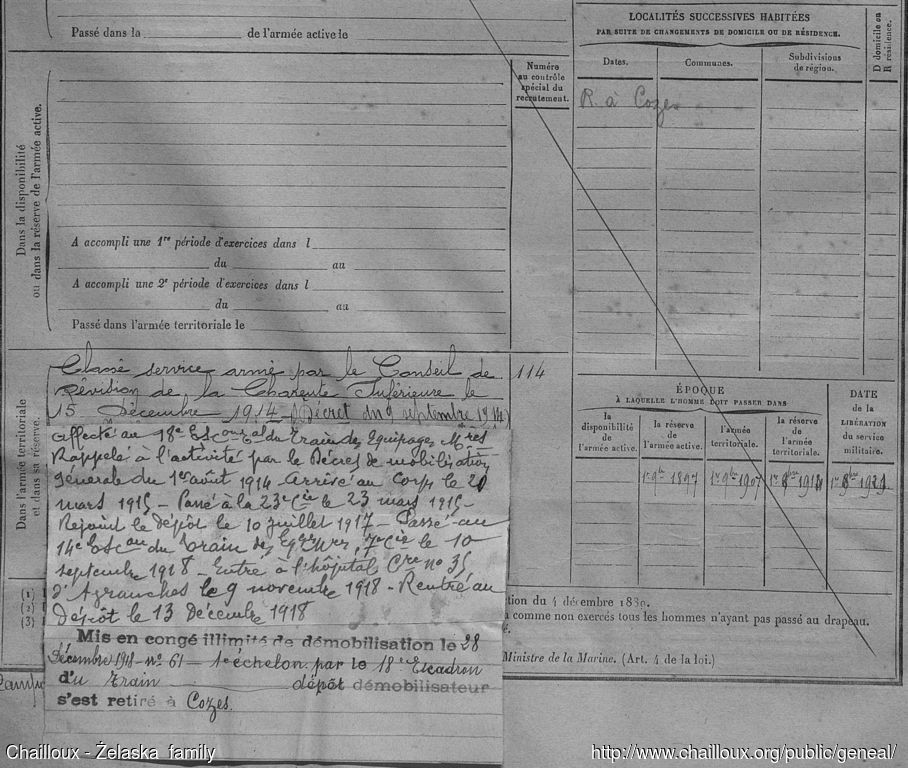 Passé dans la de l'armée active le
LOCALITÉS SUCCESSIVES HABITÉES
PAR SUITE DE CHANGEMENTS DE DOMICILE OU DE RÉSIDENCE.
D domicile ou
R résidence.
Dates.
Communes.
Subdivisions
de région.
Numéro
au contrôle
spécial du
recrutement.
R. à Cozes
Dans la disponibilité
ou dans la réserve de l'armée active.
A accompli une 1re période d'exercices dans l
du au
A accompli une 2e période d'exercices dans l
du au
Passé dans l'armée territoriale le
Dans l'armée territoriale
et dans sa réserve.
Classé service armé par le Conseil de
Révision de la Charente Inférieure le
15 Décembre 1914 (Décret du 9 septembre 1914)
114
ÉPOQUE
À LAQUELLE L'HOMME DOIT PASSER DANS
la
disponibilité
de l'armée
active.
la réserve
de
l'armée active.
l'armée
territoriale.
la réserve
de
l'armée
territoriale.
DATE
de la
LIBÉRATION
du service
militaire.
1er 9bre 1897
1er 9bre 1907
Affecté au 18e Escon Tal du Train des Equipages Mres
Rappelé à l'activité par le Décret de mobilisation
générale du 1er août 1914 Arrivé au Corps le 20
mars 1915 - Passé à la 23e Cie le 23 mars 1915-
Rejoint le dépôt le 10 juillet 1917 - Passé au
14e Escon du Train des Eqges Mres, Cie le 10
septembre 1918 - Entré à l'hôpital Cre no 35
d'Avranches le 9 novembre 1918 - Rentré au
Dépôt le 13 Décembre 1918
Mis en congé illimité de démobilisation le 28
Décembre 1918 - no 61 - 1e échelon par le 18e Escadron
du Train dépôt démobilisateur
s'est retiré à Cozes.
(1)
(2)
(3)
tion du 4 décembre 1889.
comme non exercés tous les hommes n'ayant pas passé au drapeau.
Ministre de la Marine. (Art. 4 de la loi.)
Chailloux - Żelaska family
http://www.chailloux.org/public/geneal/